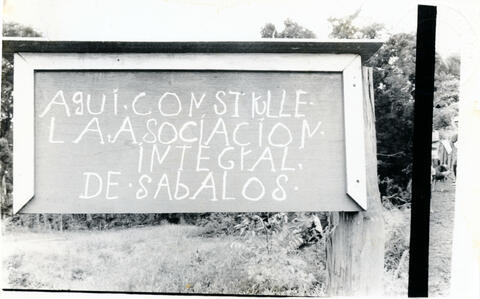 AQUI · CONSTRULLE ·
LA · ASOCIACION ·
INTEGRAL ·
DE · SABALOS ·